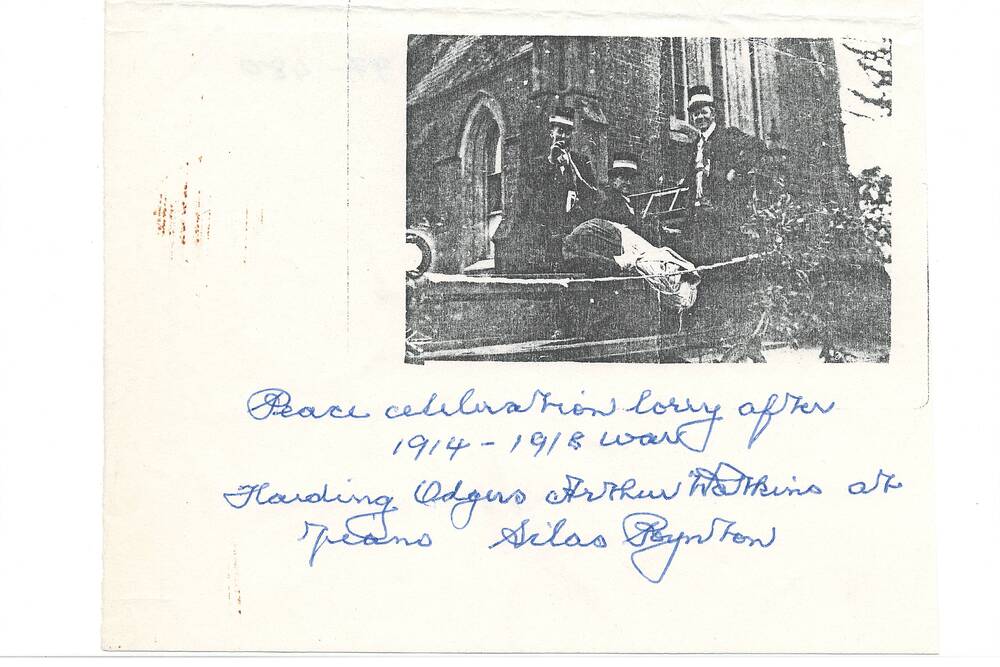 Peace celebration lorry after
1914 - 1918 war
Harding Odgers Arthur Watkins at
piano Silas Poynton